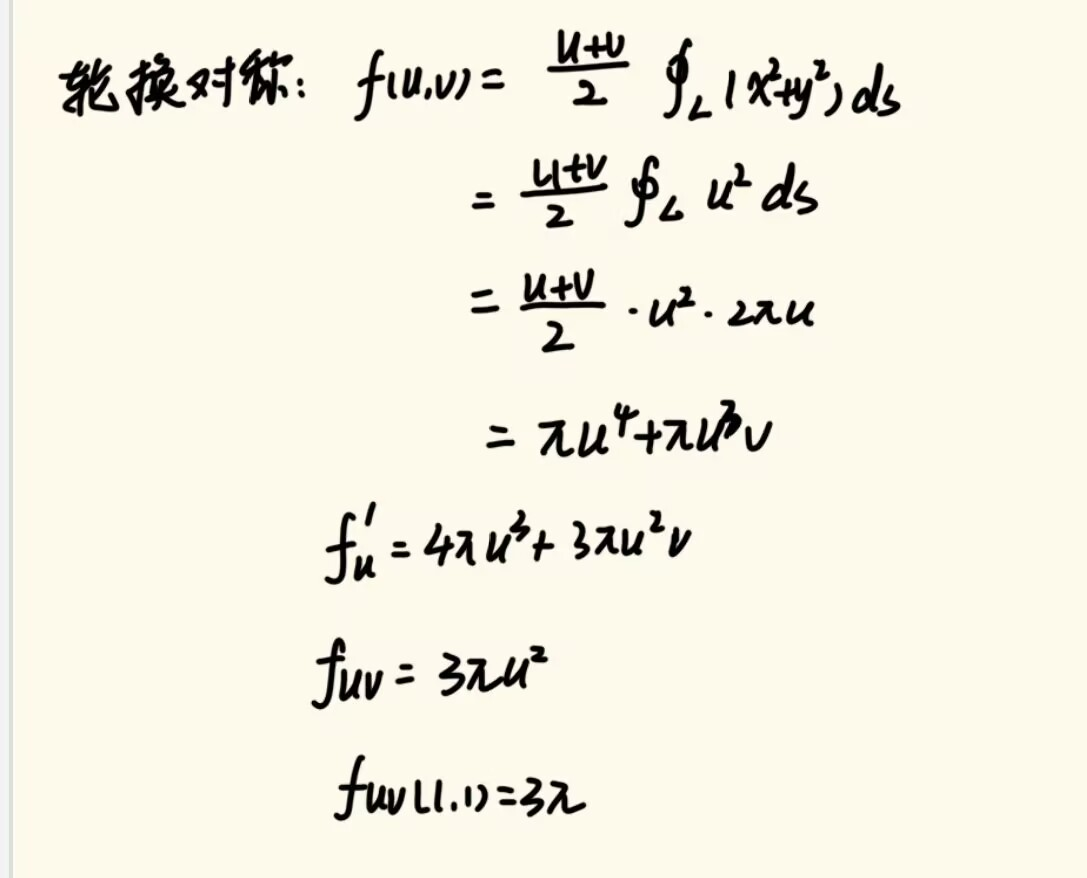 轮换对称: f(u,v) = \frac{u+v}{2} ∮_L (x²+y²) ds
= \frac{u+v}{2} ∮_L u² ds
= \frac{u+v}{2} · u² · 2πu
= πu⁴+πu³v
f'_u = 4πu³ + 3πu²v
f_{uv} = 3πu²
f_{uv}(1,1) = 3π